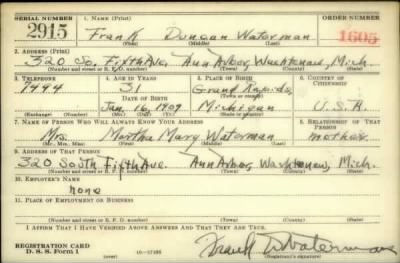 SERIAL NUMBER 1. NAME (Print) ORDER NUMBER
2915 Frank Duncan Waterman 1605
(First) (Middle) (Last)
2. ADDRESS (Print)
320 So. Fifth Ave. Ann Arbor, Washtenaw, Mich.
(Number and street or R. F. D. number) (Town) (County) (State)
3. TELEPHONE 4. AGE IN YEARS 5. PLACE OF BIRTH 6. COUNTRY OF CITIZENSHIP
7444 31 Grand Rapids
DATE OF BIRTH (Town or county)
Jan. 16, 1909 Michigan U.S.A.
(Exchange) (Number) (Mo.) (Day) (Yr.) (State or country)
7. NAME OF PERSON WHO WILL ALWAYS KNOW YOUR ADDRESS 8. RELATIONSHIP OF THAT PERSON
Mrs. Martha Mary Waterman mother
(Mr., Mrs., Miss) (First) (Middle) (Last)
9. ADDRESS OF THAT PERSON
320 South Fifth Ave. Ann Arbor, Washtenaw, Mich.
(Number and street or R. F. D. number) (Town) (County) (State)
10. EMPLOYER'S NAME
none
11. PLACE OF EMPLOYMENT OR BUSINESS
(Number and street or R. F. D. number) (Town) (County) (State)
I AFFIRM THAT I HAVE VERIFIED ABOVE ANSWERS AND THAT THEY ARE TRUE.
REGISTRATION CARD
D. S. S. Form 1 (over) Frank D Waterman
(Registrant's signature)